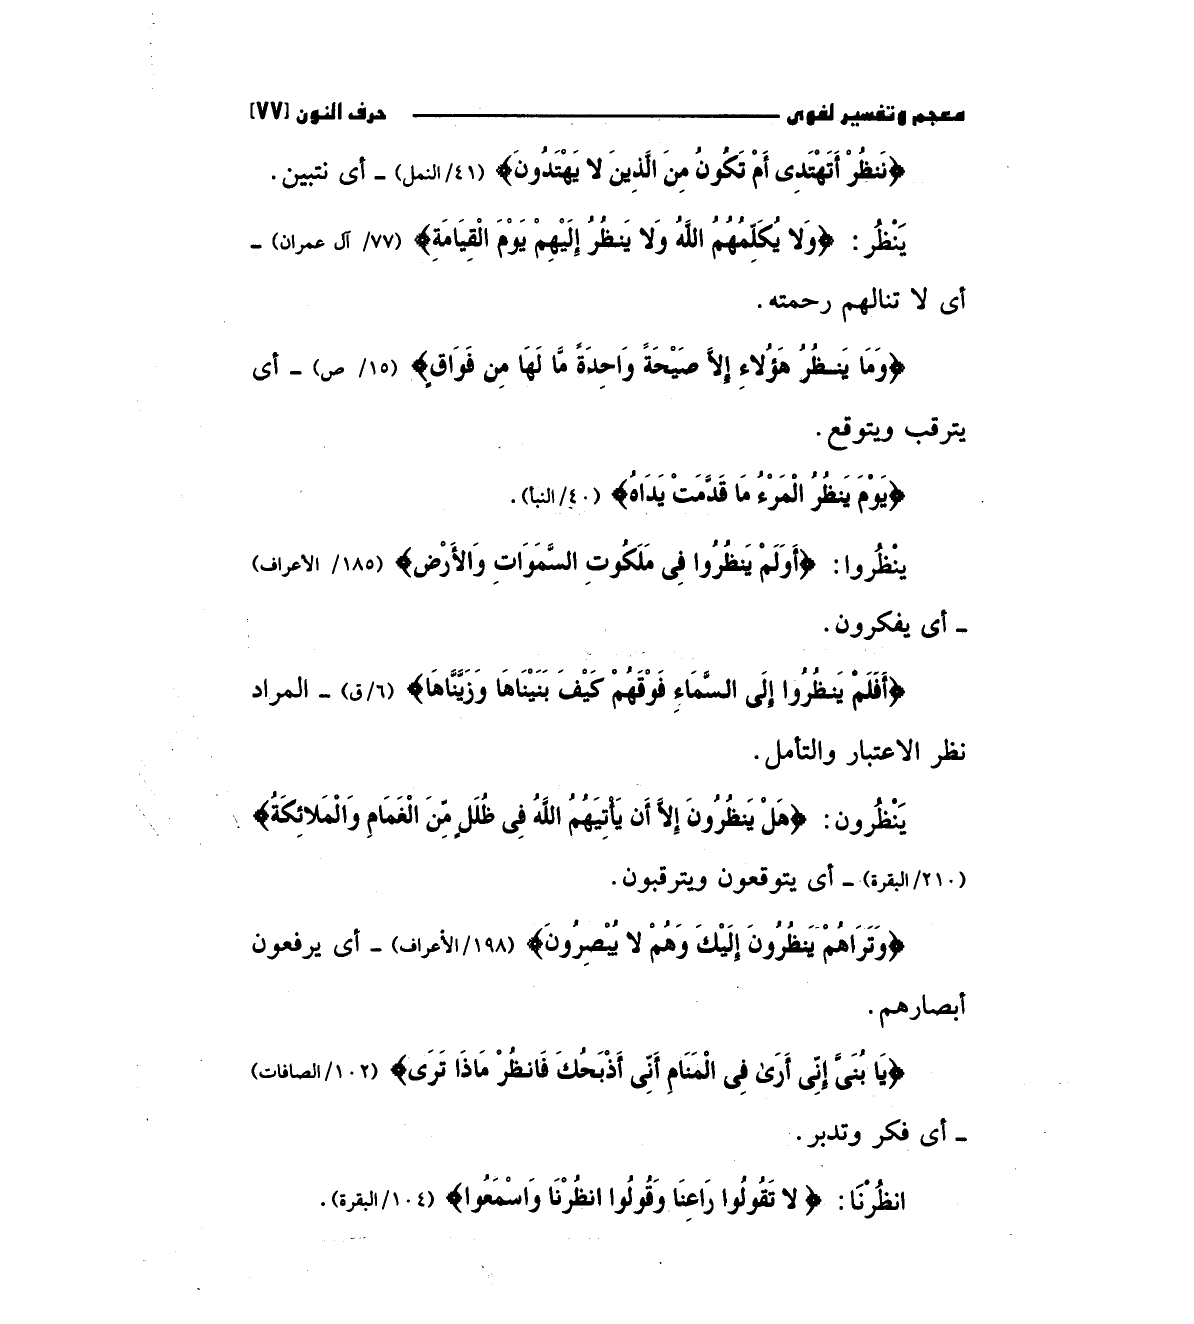 معجم وتفسير لغوى ـــــ حرف النون [٧٧]
﴿نَنظُرْ أَتَهْتَدِى أَمْ تَكُونُ مِنَ الَّذِينَ لا يَهْتَدُونَ﴾ (٤١/النمل) ـ أى نتبين.
يَنْظُر: ﴿وَلا يُكَلِّمُهُمُ اللَّهُ وَلا يَنظُرُ إِلَيْهِمْ يَوْمَ الْقِيَامَةِ﴾ (٧٧/ آل عمران) ـ
أى لا تنالهم رحمته.
﴿وَمَا يَنظُرُ هَؤُلاءِ إِلاَّ صَيْحَةً وَاحِدَةً مَّا لَهَا مِن فَوَاقٍ﴾ (١٥/ ص) ـ أى
يترقب ويتوقع.
﴿يَوْمَ يَنظُرُ الْمَرْءُ مَا قَدَّمَتْ يَدَاهُ﴾ (٤٠/النبأ).
ينْظُروا: ﴿أَوَلَمْ يَنظُرُوا فِى مَلَكُوتِ السَّمَوَاتِ وَالأَرْضِ﴾ (١٨٥/ الأعراف)
ـ أى يفكرون.
﴿أَفَلَمْ يَنظُرُوا إِلَى السَّمَاءِ فَوْقَهُمْ كَيْفَ بَنَيْنَاهَا وَزَيَّنَّاهَا﴾ (٦/ق) ـ المراد
نظر الاعتبار والتأمل.
يَنْظُرون: ﴿هَلْ يَنظُرُونَ إِلاَّ أَن يَأْتِيَهُمُ اللَّهُ فِى ظُلَلٍ مِّنَ الْغَمَامِ وَالْمَلائِكَةُ﴾
(٢١٠/البقرة) ـ أى يتوقعون ويترقبون.
﴿وَتَرَاهُمْ يَنظُرُونَ إِلَيْكَ وَهُمْ لا يُبْصِرُونَ﴾ (١٩٨/الأعراف) ـ أى يرفعون
أبصارهم.
﴿يَا بُنَىَّ إِنِّى أَرَىٰ فِى الْمَنَامِ أَنِّى أَذْبَحُكَ فَانظُرْ مَاذَا تَرَى﴾ (١٠٢/الصافات)
ـ أى فكر وتدبر.
انظُرْنَا: ﴿لا تَقُولُوا رَاعِنَا وَقُولُوا انظُرْنَا وَاسْمَعُوا﴾ (١٠٤/البقرة).